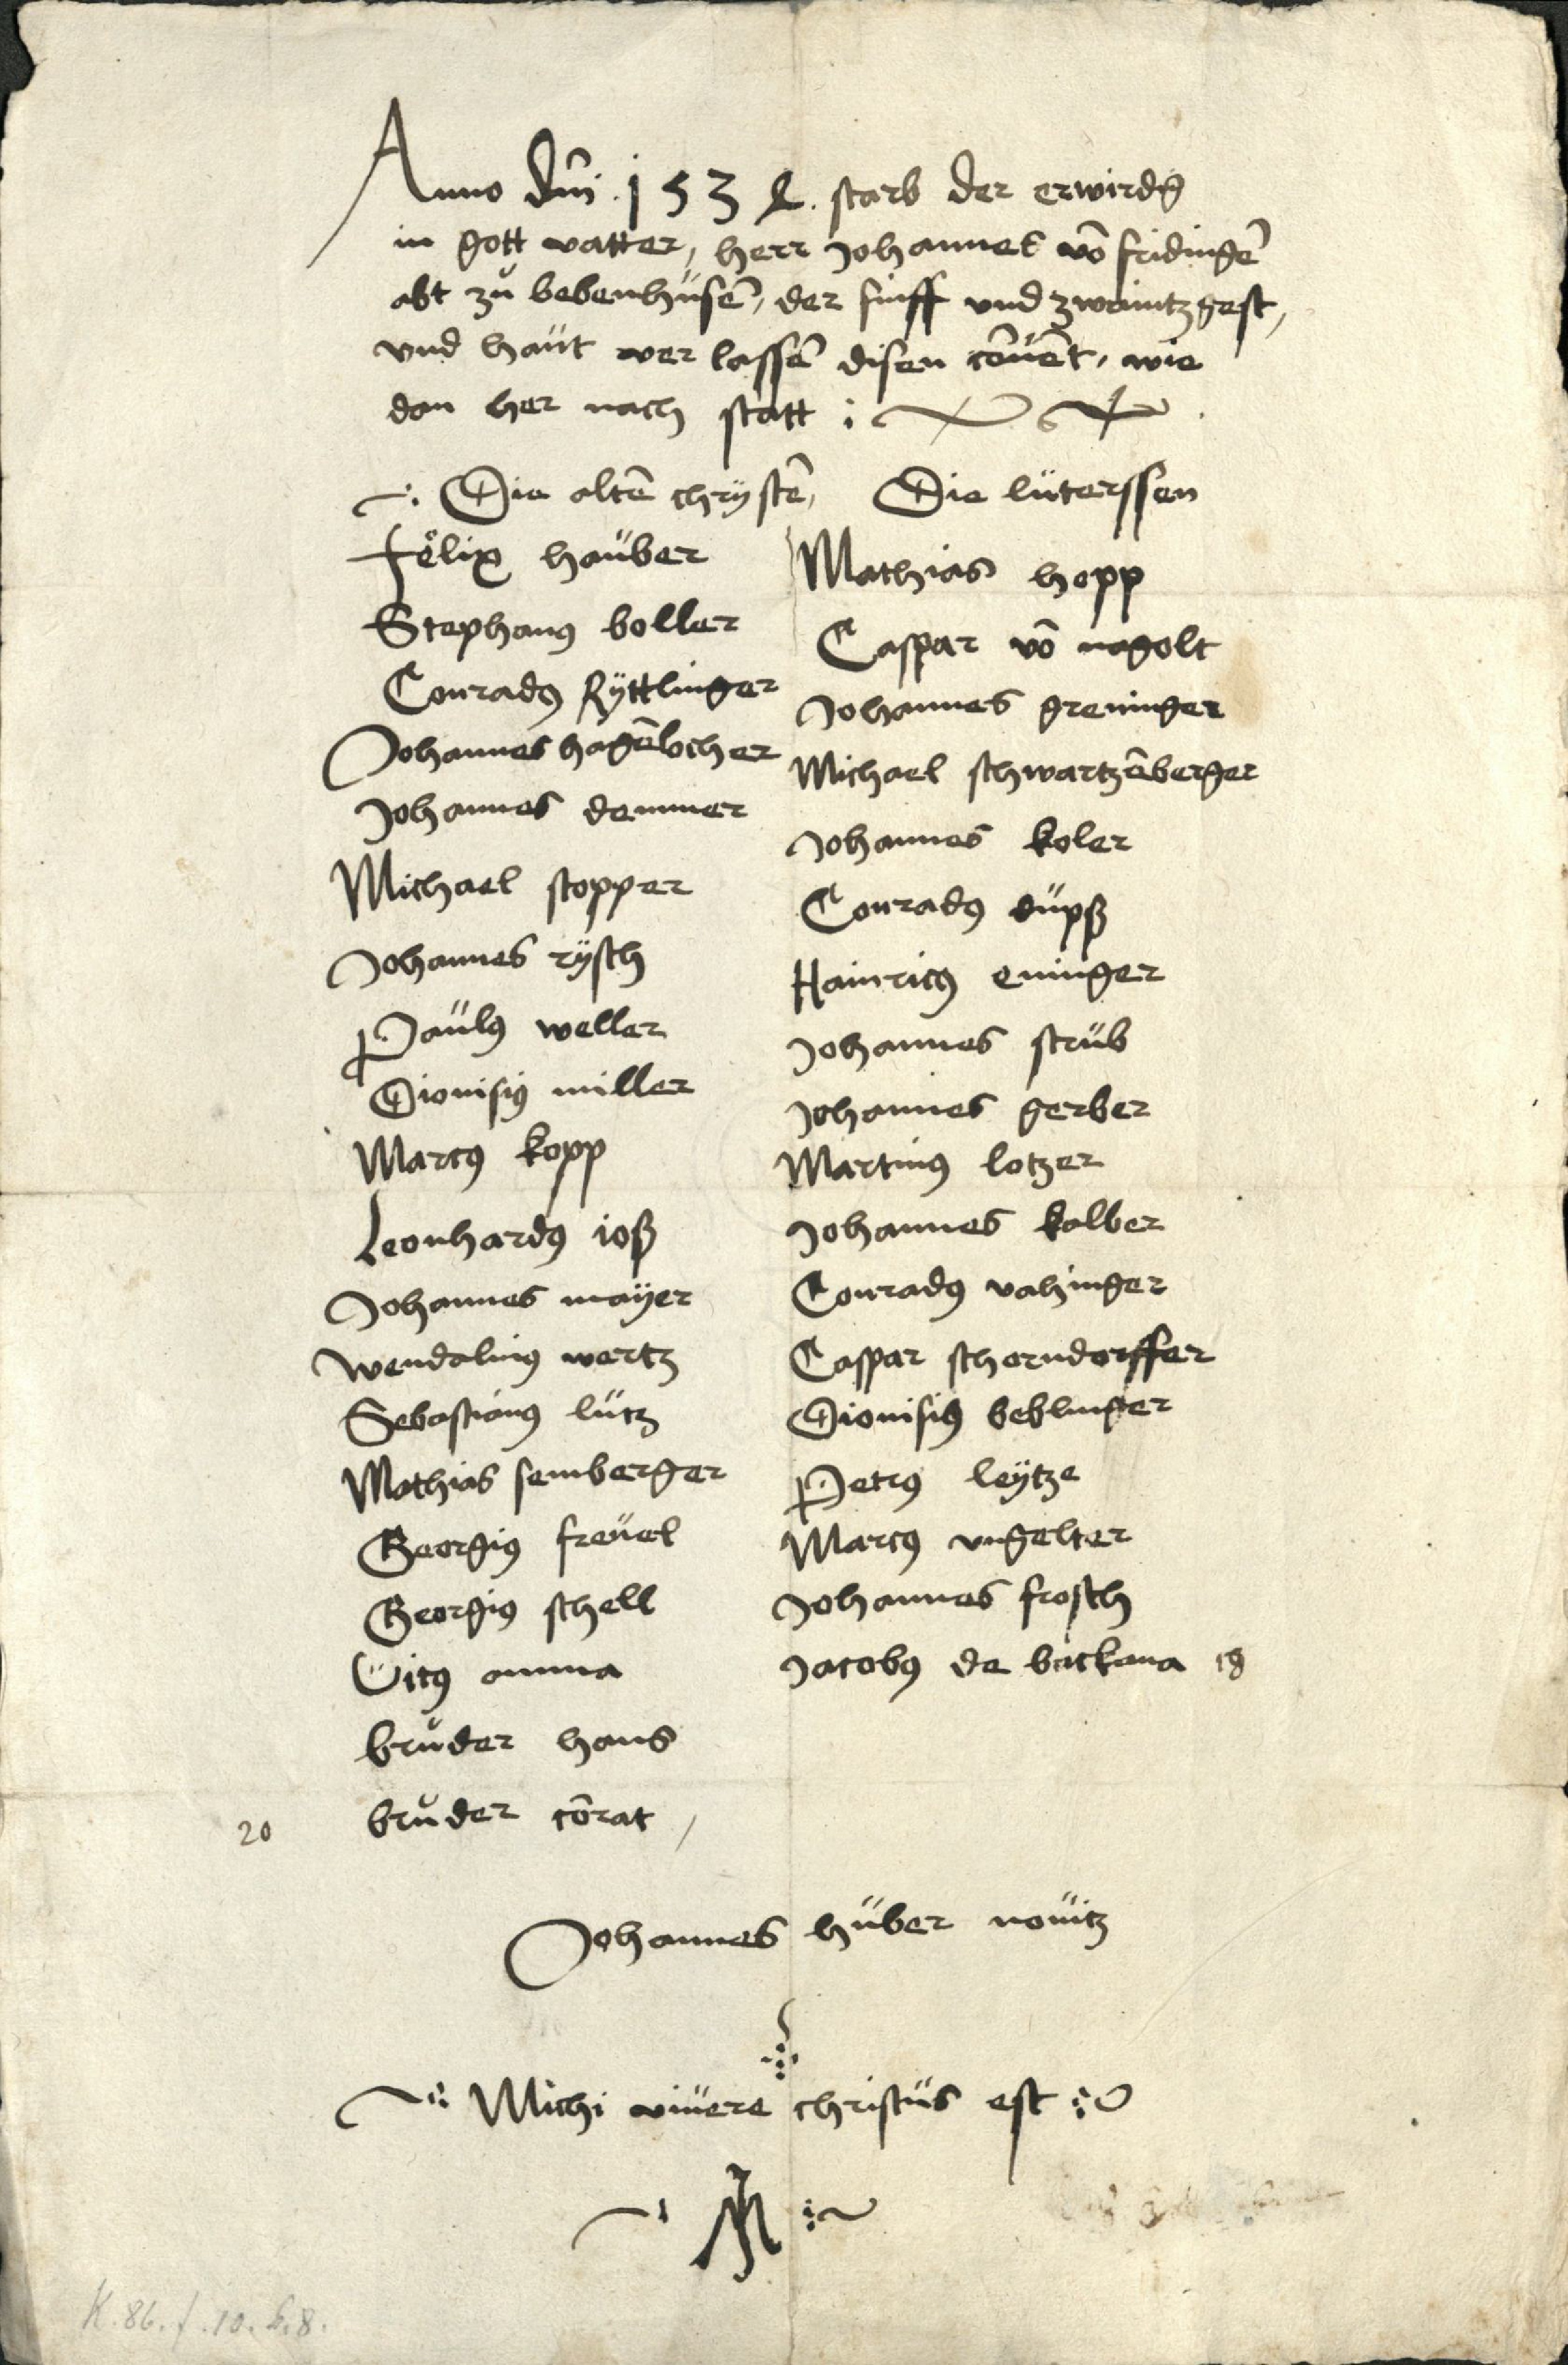 Anno dni . 1534 . starb der erwirdg
in gott vatter, herr Johannes vō fridingē
abt zů bebenhüsē, der finff vnd zwaintzgest,
vnd haüt ver lassē disen cōuēt, wie
dan her nach statt :
Die altē chrÿstē,
Felix haüber
Stephanꝰ boller
Conradꝰ Rÿttlinger
Johannes hagēlocher
Johannes demmer
Michael stopper
Johannes rÿsch
Paülꝰ weller
Dionisiꝰ miller
Marcꝰ kopp
Leonhardꝰ ioß
Johannes maÿer
Wendalinꝰ wertz
Sebastianꝰ lütz
Mathias semberger
Georgiꝰ freüel
Georgiꝰ schell
Vitꝰ amma
brůder hans
20 brůder cōrat,
Die lüterssen
Mathias hopp
Caspar vō nagolt
Johannes greninger
Michael schwartzēberger
Johannes koler
Conradꝰ düpß
Hainricꝰ eninger
Johannes strüb
Johannes gerber
Martinꝰ lotzer
Johannes kalber
Conradꝰ vahinger
Caspar schorndorffer
Dionisiꝰ beblinger
Petrꝰ leÿtze
Marcꝰ vngelter
Johannes frosch
Jacobꝰ de backana 18
Johannes hüber nouitz
Michi viüere christüs est
K. 86. f. 10. b. 8.